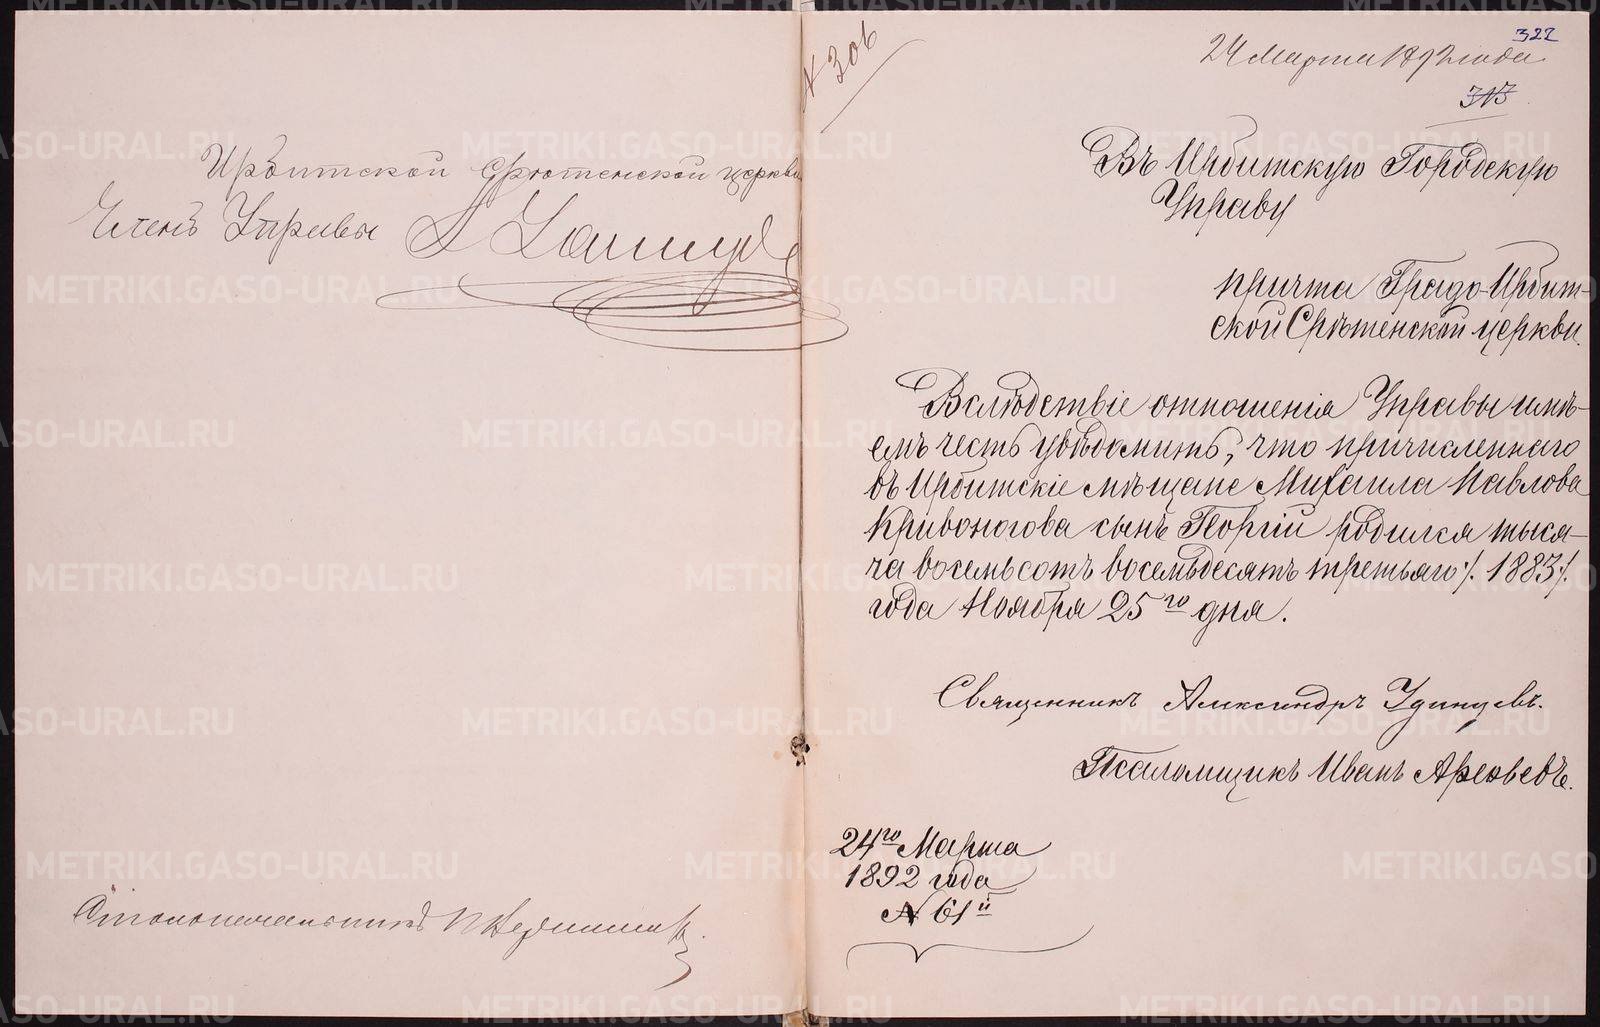 Ирбитской Срѣтенской церкви
Членъ Управы
Столоначальникъ
№ 306
322
24 Марта 1892 года
313
Въ Ирбитскую Городскую
Управу
Причта Градо-Ирбит-
ской Срѣтенской церкви.
Вслѣдствіе отношенія Управы имѣ-
емъ честь увѣдомить, что причисленнаго
въ Ирбитскіе мѣщане Михаила Павлова
Кривоногова сынъ Георгій родился тыся-
ча восемьсотъ восемьдесятъ третьяго ·/. 1883 ·/.
года Ноября 25го дня.
Священникъ Александръ Удинцевъ.
Псаломщикъ Иванъ Арефьевъ.
24го Марта
1892 года
№ 61й
METRIKI.GASO-URAL.RU